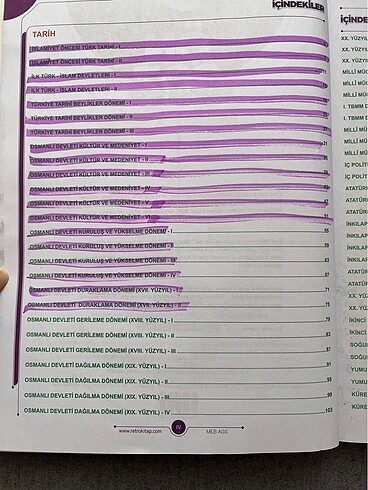 İÇİNDEKİLER
TARİH
İSLAMİYET ÖNCESİ TÜRK TARİHİ - I
İSLAMİYET ÖNCESİ TÜRK TARİHİ - II
İLK TÜRK - İSLAM DEVLETLERİ - I
İLK TÜRK - İSLAM DEVLETLERİ - II
TÜRKİYE TARİHİ BEYLİKLER DÖNEMİ - I
TÜRKİYE TARİHİ BEYLİKLER DÖNEMİ - II
TÜRKİYE TARİHİ BEYLİKLER DÖNEMİ - III
OSMANLI DEVLETİ KÜLTÜR VE MEDENİYET - I 31
OSMANLI DEVLETİ KÜLTÜR VE MEDENİYET - II 35
OSMANLI DEVLETİ KÜLTÜR VE MEDENİYET - III 39
OSMANLI DEVLETİ KÜLTÜR VE MEDENİYET - IV 43
OSMANLI DEVLETİ KÜLTÜR VE MEDENİYET - V 47
OSMANLI DEVLETİ KÜLTÜR VE MEDENİYET - VI 51
OSMANLI DEVLETİ KURULUŞ VE YÜKSELME DÖNEMİ - I 55
OSMANLI DEVLETİ KURULUŞ VE YÜKSELME DÖNEMİ - II 59
OSMANLI DEVLETİ KURULUŞ VE YÜKSELME DÖNEMİ - III 63
OSMANLI DEVLETİ KURULUŞ VE YÜKSELME DÖNEMİ - IV 67
OSMANLI DEVLETİ DURAKLAMA DÖNEMİ (XVII. YÜZYIL) - I 71
OSMANLI DEVLETİ DURAKLAMA DÖNEMİ (XVII. YÜZYIL) - II 75
OSMANLI DEVLETİ GERİLEME DÖNEMİ (XVIII. YÜZYIL) - I 79
OSMANLI DEVLETİ GERİLEME DÖNEMİ (XVIII. YÜZYIL) - II 83
OSMANLI DEVLETİ GERİLEME DÖNEMİ (XVIII. YÜZYIL) - III 87
OSMANLI DEVLETİ DAĞILMA DÖNEMİ (XIX. YÜZYIL) - I 91
OSMANLI DEVLETİ DAĞILMA DÖNEMİ (XIX. YÜZYIL) - II 95
OSMANLI DEVLETİ DAĞILMA DÖNEMİ (XIX. YÜZYIL) - III 99
OSMANLI DEVLETİ DAĞILMA DÖNEMİ (XIX. YÜZYIL) - IV 103
www.retrokitap.com IV MEB AGS
İÇİNDE
XX. YÜZYIL
XX. YÜZYI
MİLLİ MÜC
MİLLİ MÜC
MİLLİ MÜC
I. TBMM D
MİLLİ MÜ
MİLLİ MÜ
İÇ POLİTİ
İÇ POLİTİ
ATATÜR
ATATÜR
ATATÜR
İNKILAP
İNKILAP
İNKILAP
ATATÜ
ATATÜ
XX. YÜ
XX. YÜ
İKİNCİ
İKİNCİ
SOĞU
SOĞU
YUMU
YUMU
KÜRE
KÜRE